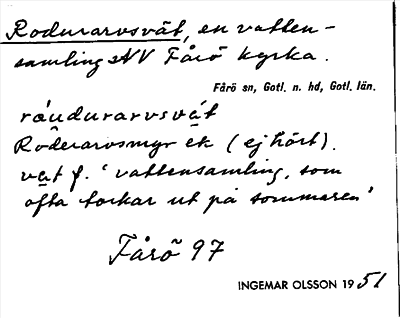 Rodurarvsvät, en vatten-
samling NV Fårö kyrka.
Fårö sn, Gotl. n. hd, Gotl. län.
ráudurarvsvát
Roderarvsmyr ek (ej hört).
vät f. 'vattensamling, som
ofta torkar ut på sommaren'
Fårö 97
INGEMAR OLSSON 1951